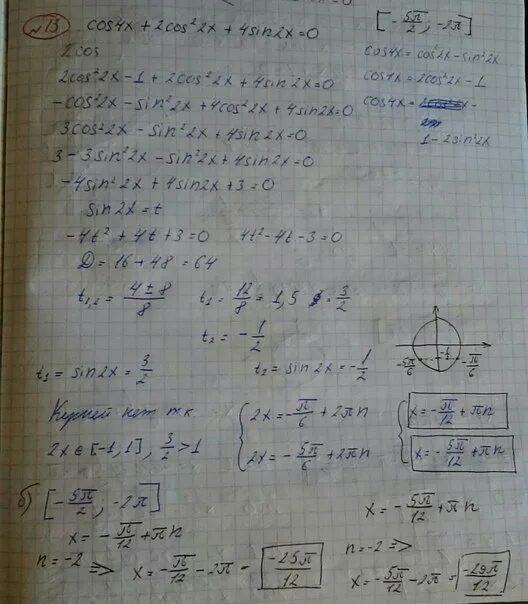 №13 cos4x + 2cos²2x + 4sin2x = 0 [-5π/2; -2π]
2cos
cos4x = cos²2x - sin²2x
2cos²2x - 1 + 2cos²2x + 4sin2x = 0
cos4x = 2cos²2x - 1
-cos²2x - sin²2x + 4cos²2x + 4sin2x = 0
cos4x =
1 - 2sin²2x
3cos²2x - sin²2x + 4sin2x = 0
3 - 3sin²2x - sin²2x + 4sin2x = 0
-4sin²2x + 4sin2x + 3 = 0
sin2x = t
-4t² + 4t + 3 = 0 4t² - 4t - 3 = 0
D = 16 + 48 = 64
t₁,₂ = (4 ± 8)/8 t₁ = 12/8 = 1,5 = 3/2
t₂ = -1/2
-1/2
-5π/6 -π/6
t₁ = sin2x = 3/2 t₂ = sin2x = -1/2
Корней нет тк
2x ∈ [-1, 1], 3/2 > 1
2x = -π/6 + 2πn
x = -π/12 + πn
2x = -5π/6 + 2πn
x = -5π/12 + πn
б) [-5π/2, -2π]
x = -π/12 + πn
n = -2 => x = -π/12 - 2π = -25π/12
x = -5π/12 + πn
n = -2 =>
x = -5π/12 - 2π = -29π/12